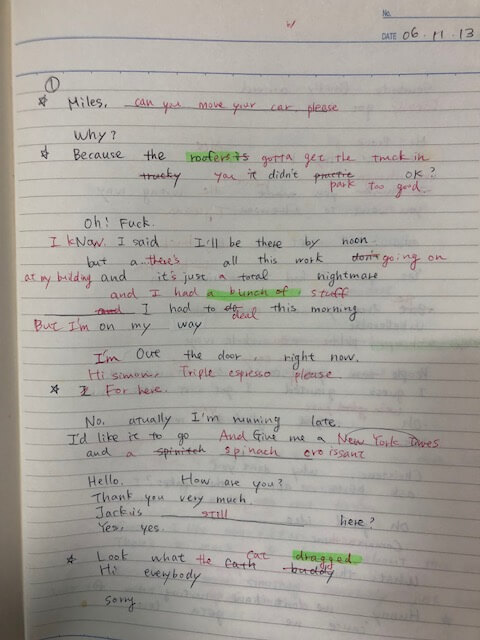 No.
DATE 06.11.13
①
☆ Miles, can you move your car, please
Why?
☆ Because the roofers is gotta get the truck in
trucky you it didn't practic OK?
park too good.
Oh! Fuck.
I kNow. I said I'll be there by noon
but a there's all this work don't going on
at my building and it's just a total nightmare
and I had a bunch of stuff
and I had to do deal this morning
But I'm on my way
I'm Out the door, right now.
Hi simon, Triple espresso please
☆ I For here.
No. atually I'm running late.
I'd like it to go And Give me a New York Times
and a spinitch spinach croissant
Hello. How are you?
Thank you very much.
Jack is still here?
Yes, yes.
☆ Look what the cat cath dragged
Hi everybody buddy
sorry